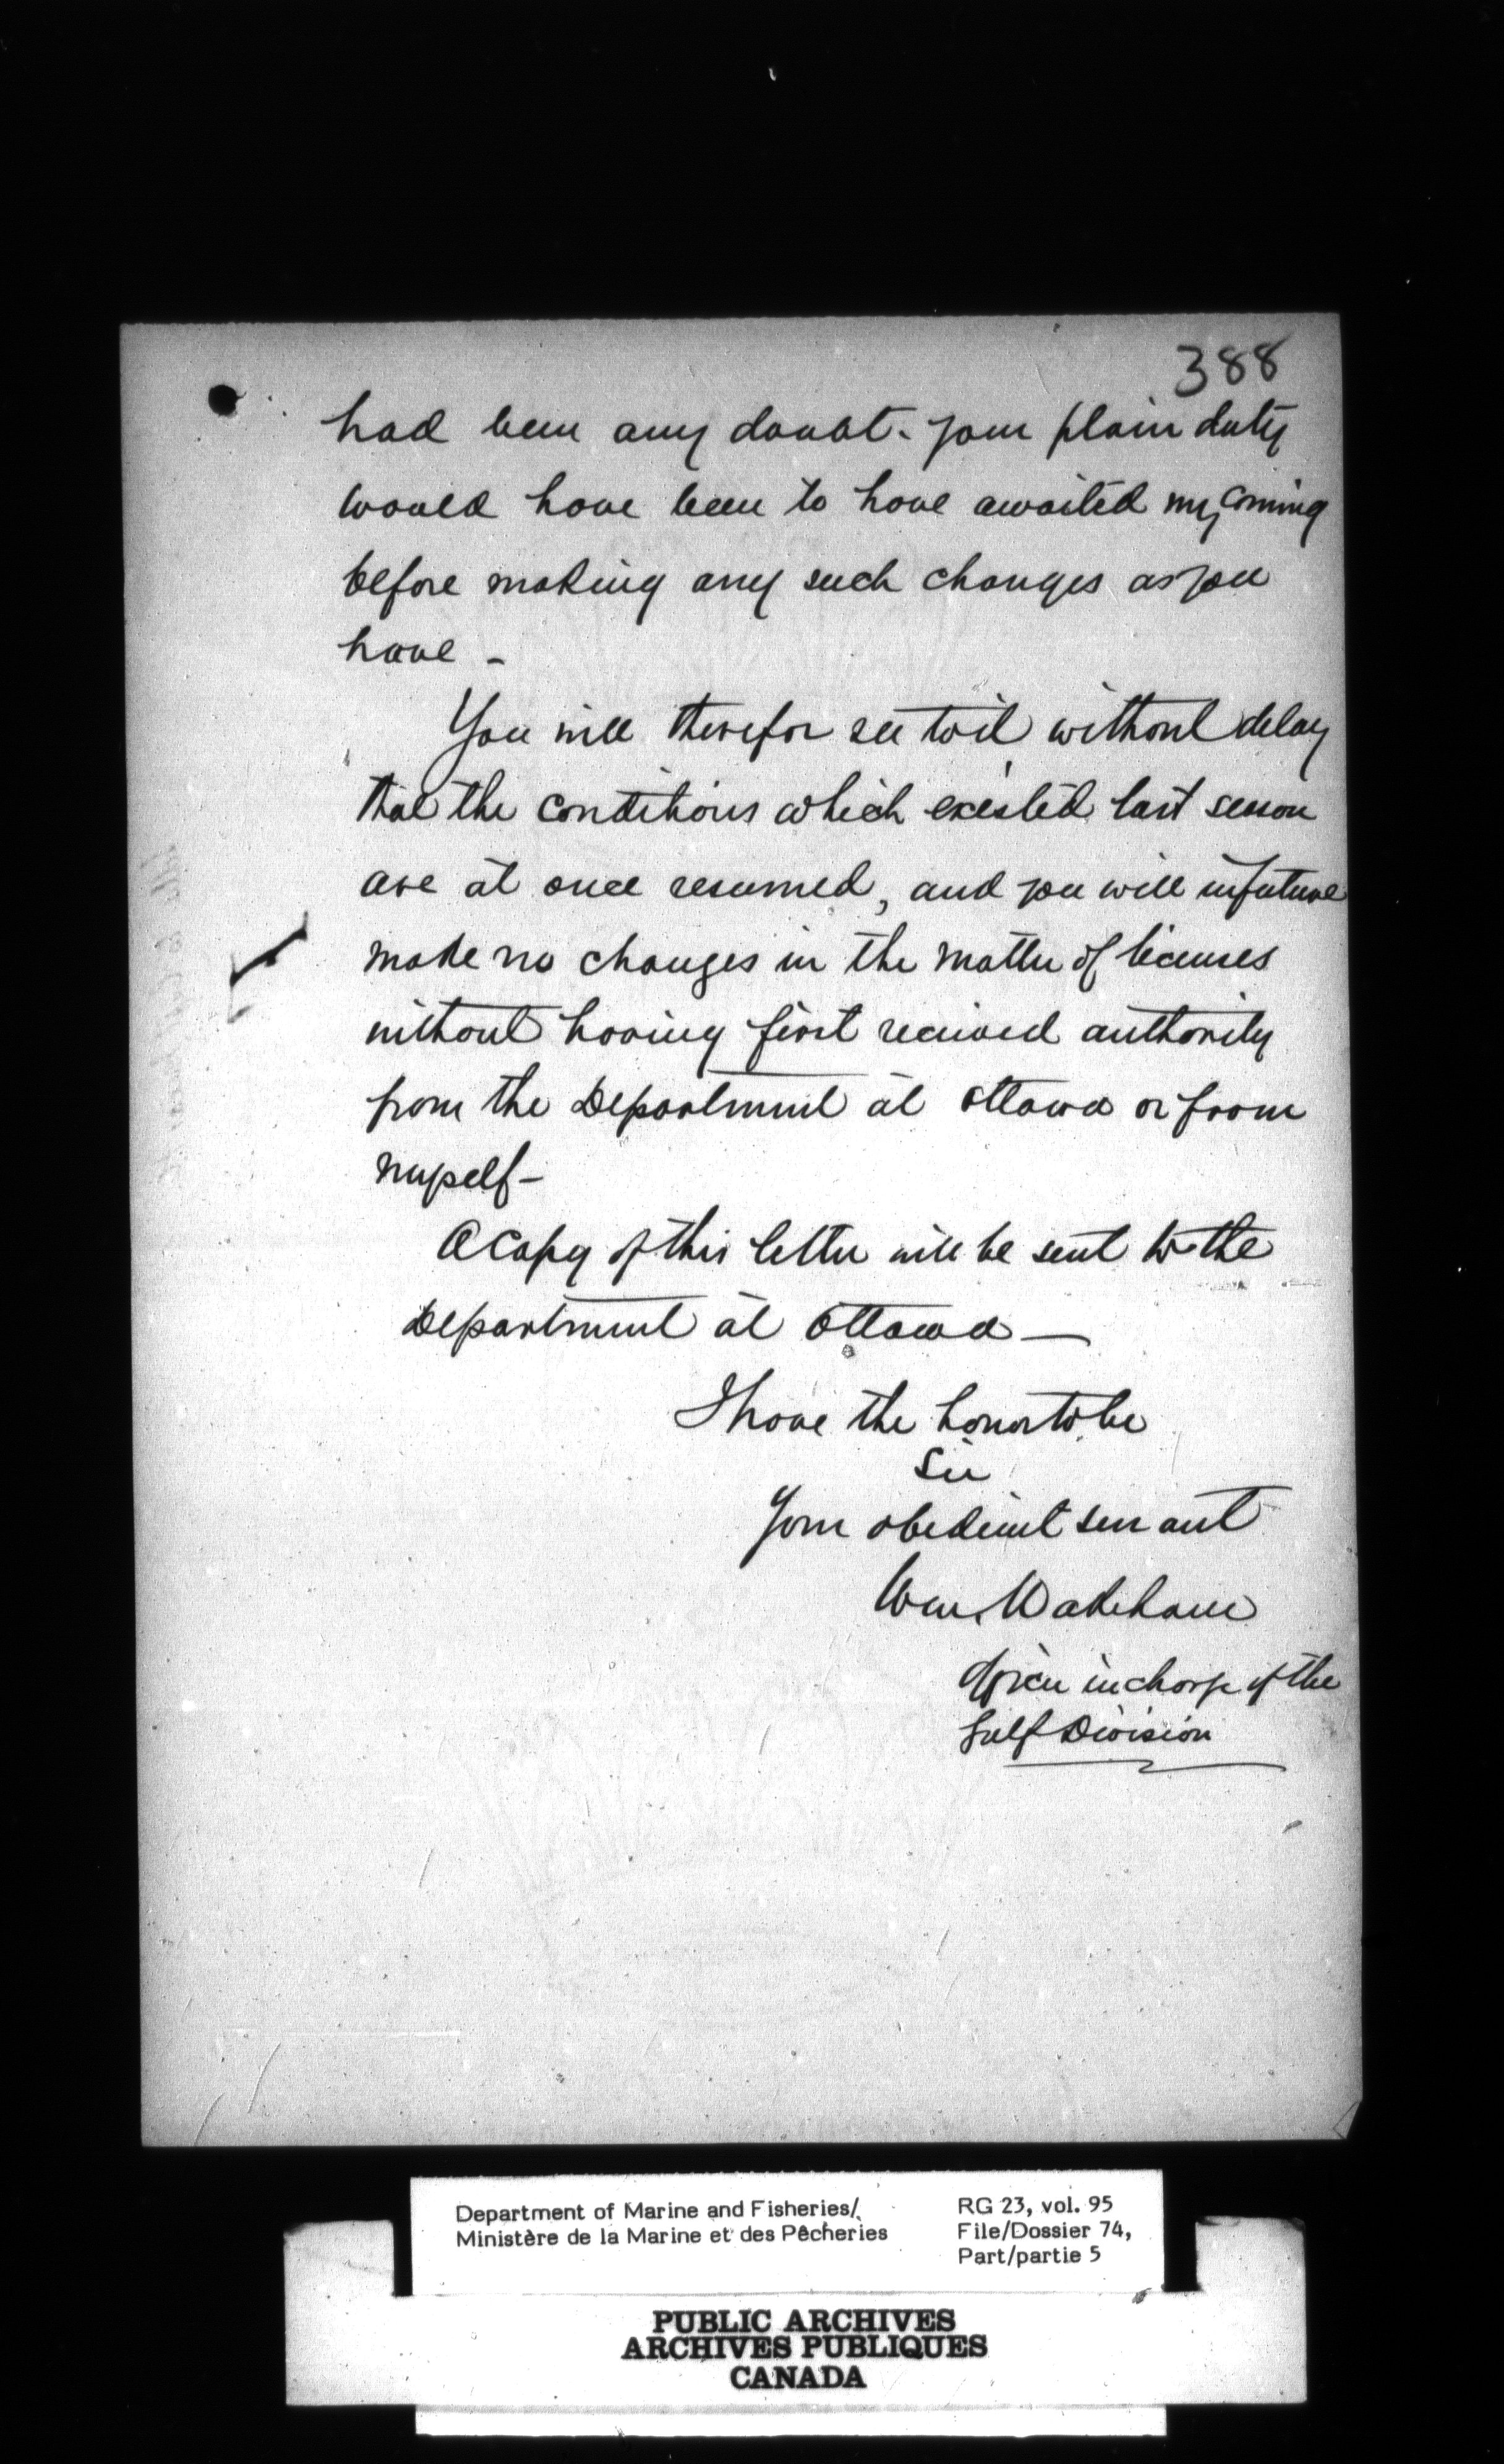 388
had been any doubt. your plain duty
would have been to have awaited my coming
before making any such changes as you
have -
You will therefor see to it without delay
that the conditions which existed last season
are at once resumed, and you will in future
make no changes in the matter of licenses
without having first received authority
from the Department at Ottawa or from
myself -
A copy of this letter will be sent to the
Department at Ottawa —
I have the honor to be
Sir
Your obedient servant
Wm. Wakeham
Officer in charge of the
Gulf Division
Department of Marine and Fisheries/ RG 23, vol. 95
Ministère de la Marine et des Pêcheries File/Dossier 74,
Part/partie 5
PUBLIC ARCHIVES
ARCHIVES PUBLIQUES
CANADA